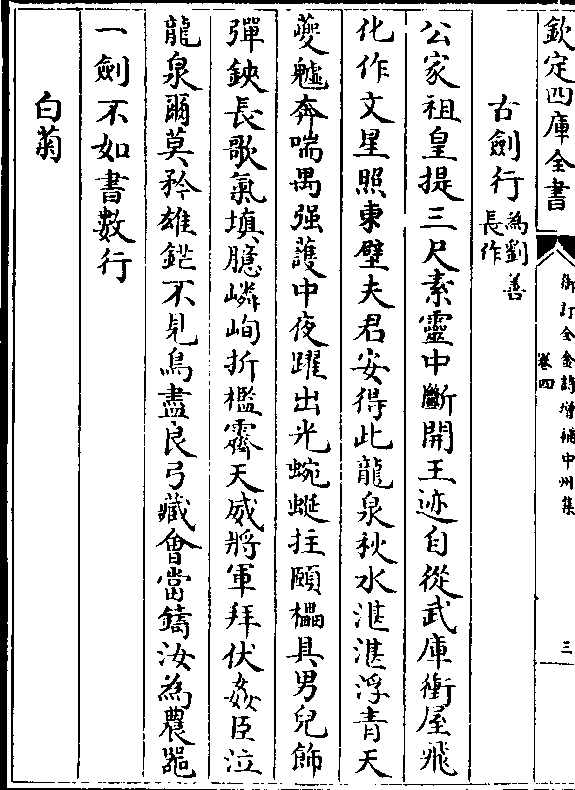 欽定四庫全書
御訂全金詩增補中州集
卷四
三
古劍行為劉善長作
公家祖皇提三尺素靈中斷開王迹自從武庫衝屋飛
化作文星照東壁夫君安得此龍泉秋水湛湛浮青天
夔魖奔喘禺强護中夜躍出光蜿蜒拄頤櫑具男兒飾
彈鋏長歌氣填臆嶙峋折檻霽天威將軍拜伏姦臣泣
龍泉爾莫矜雄鋩不見鳥盡良弓藏會當鑄汝為農器
一劍不如書數行
白菊